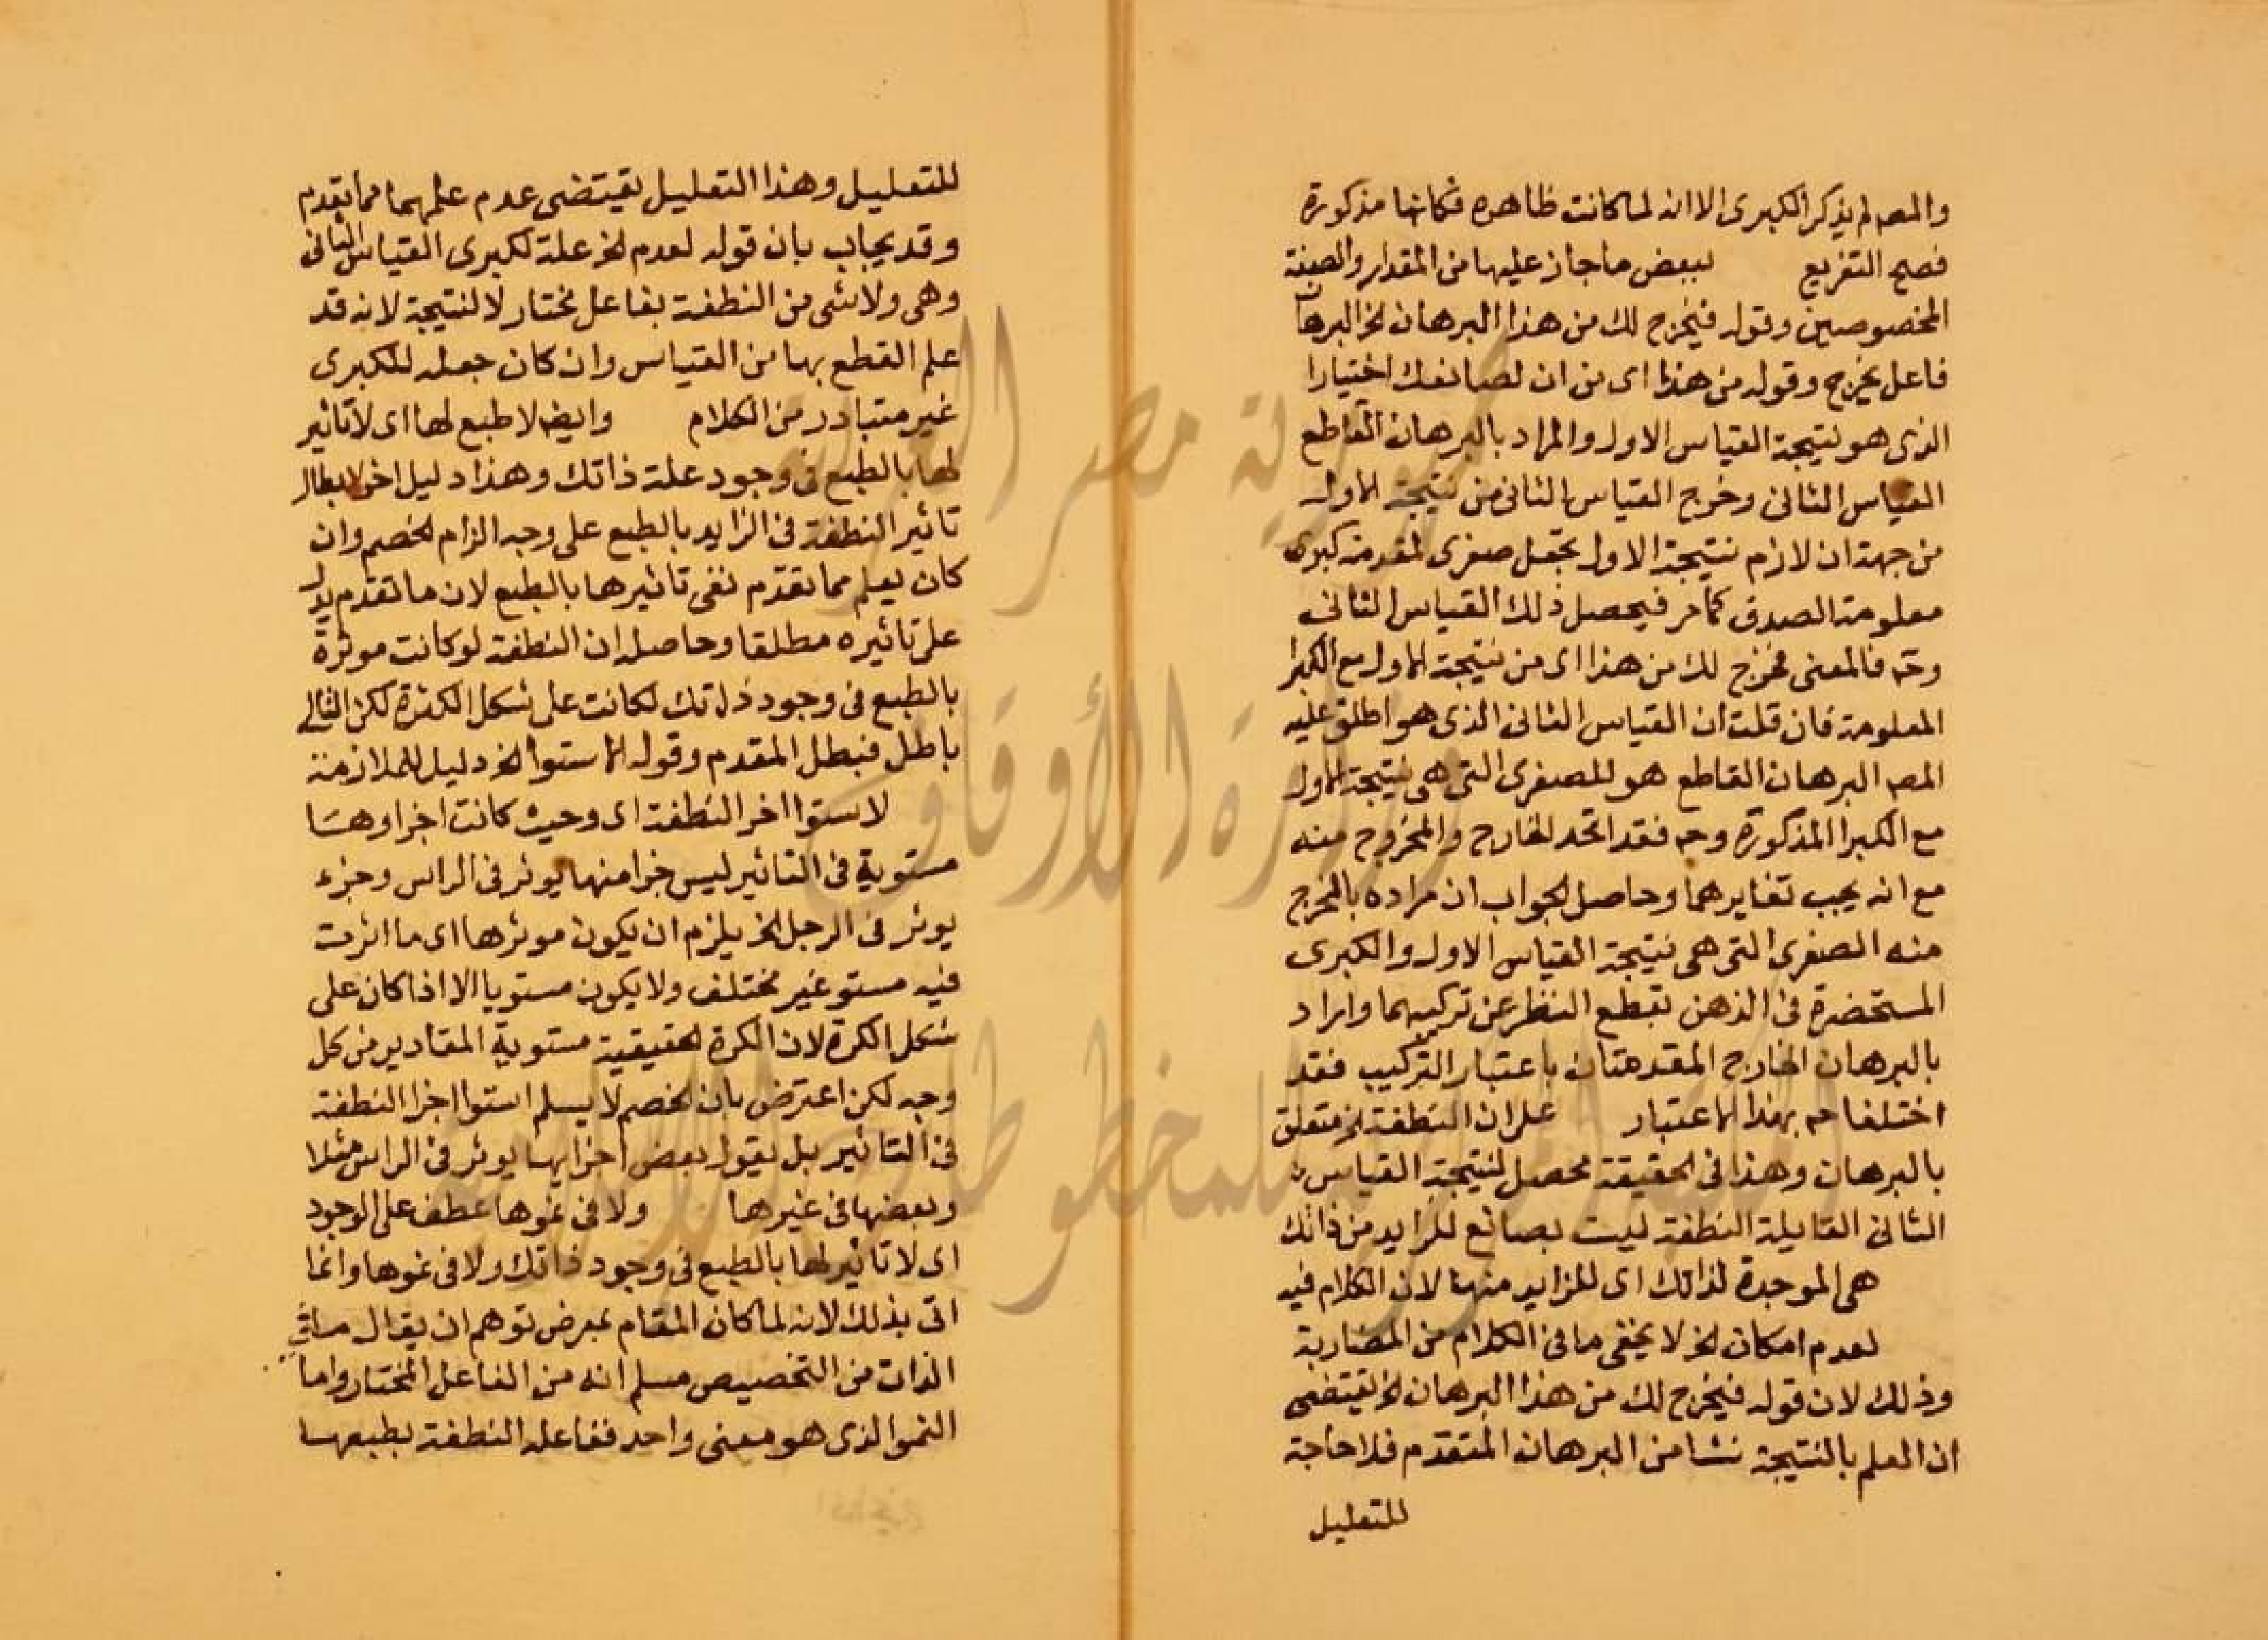 والمص لم يذكر الكبرى الا انه لما كانت ظاهره فكانها مذكورة
فصح التفريع ببعض ما جاز عليها من المقدار والصفة
المخصوصين وقوله فيخرج لك من هذا البرهان الخ البرهان
فاعل يخرج وقوله من هذا اى من ان لصانعك اختيارا
الذى هو نتيجة القياس الاول والمراد بالبرهان القاطع
القياس الثانى وخرج القياس الثانى من نتيجة الاول
من جهة ان لازم نتيجة الاول تجعل صغرى لمقدمة كبرى
معلومة الصدق كما مر فيحصل ذلك القياس الثانى
وحـ فالمعنى فخرج لك من هذا اى من نتيجة الاول مع الكبرا
المعلومة فان قلت ان القياس الثانى الذى هو اطلق عليه
المص البرهان القاطع هو للصغرى التى هى نتيجة الاول
مع الكبرا المذكورة وحـ فقد اتحد الخارج والمخروج منه
مع انه يجب تغايرهما وحاصل الجواب ان مراده بالمخرج
منه الصغرى التى هى نتيجة القياس الاول والكبرى
المستحضرة فى الذهن بقطع النظر عن تركيبهما واراد
بالبرهان الخارج المقدمتان باعتبار التركيب فقد
اختلفا حـ بهذا الاعتبار على ان النطفة الخ متعلق
بالبرهان وهذا فى الحقيقة محصل لنتيجة القياس
الثانى القايلة النطفة ليست بصانع للزايد من ذاتك
هى الموجدة لذاتك اى للزايد منها لان الكلام فيه
لعدم امكان الخ لا يخفى ما فى الكلام من المضاربة
وذلك لان قوله فيخرج لك من هذا البرهان الخ يقتضى
ان العلم بالنتيجة نشا من البرهان المتقدم فلا حاجة
للتعليل
للتعليل وهذا التعليل يقتضى عدم علمهما مما تقدم
وقد يجاب بان قوله لعدم الخ علة لكبرى القياس الثانى
وهى ولا شى من النطفة بفاعل مختار لا لنتيجة لانه قد
علم القطع بها من القياس وان كان جعله للكبرى
غير متبادر من الكلام وايضا لا طبع لها اى لا تاثير
لها بالطبع فى وجود علة ذاتك وهذا دليل اخر لابطال
تاثير النطفة فى الزايد بالطبع على وجه الزام الخصم وان
كان يعلم مما تقدم نفى تاثيرها بالطبع لان ما تقدم يدل
على تاثيره مطلقا وحاصله ان النطفة لو كانت موثرة
بالطبع فى وجود ذاتك لكانت على شكل الكثرة لكن التالى
باطل فبطل المقدم وقوله لاستوا الخ دليل للملازمة
لاستوا اخر النطفة اى وحيث كانت اجزاوهـا
مستوية فى التاثير ليس جزا منها يوثر فى الراس وجزء
يوثر فى الرجل الخ يلزم ان يكون موثرها اى ما اثرت
فيه مستو غير مختلف ولا يكون مستويا الا اذا كان على
شكل الكرة لان الكرة الحقيقية مستوية المقادير من كل
وجه لكن اعترض بان الخصم لا يسلم استوا اجزا النطفة
فى التاثير بل يقول بعض اجزايها يوثر فى الراس مثلا
وبعضها فى غيرها ولا فى نموها عطف على الوجود
اى لا تاثير لها بالطبع فى وجود ذاتك ولا فى نموها وانما
اتى بذلك لانه لما كان المقام بمعرض توهم ان يقال ما فى
الذات من التخصيص مسلم انه من الفاعل المختار واما
النمو الذى هو معنى واحد ففاعله النطفة بطبعهـا